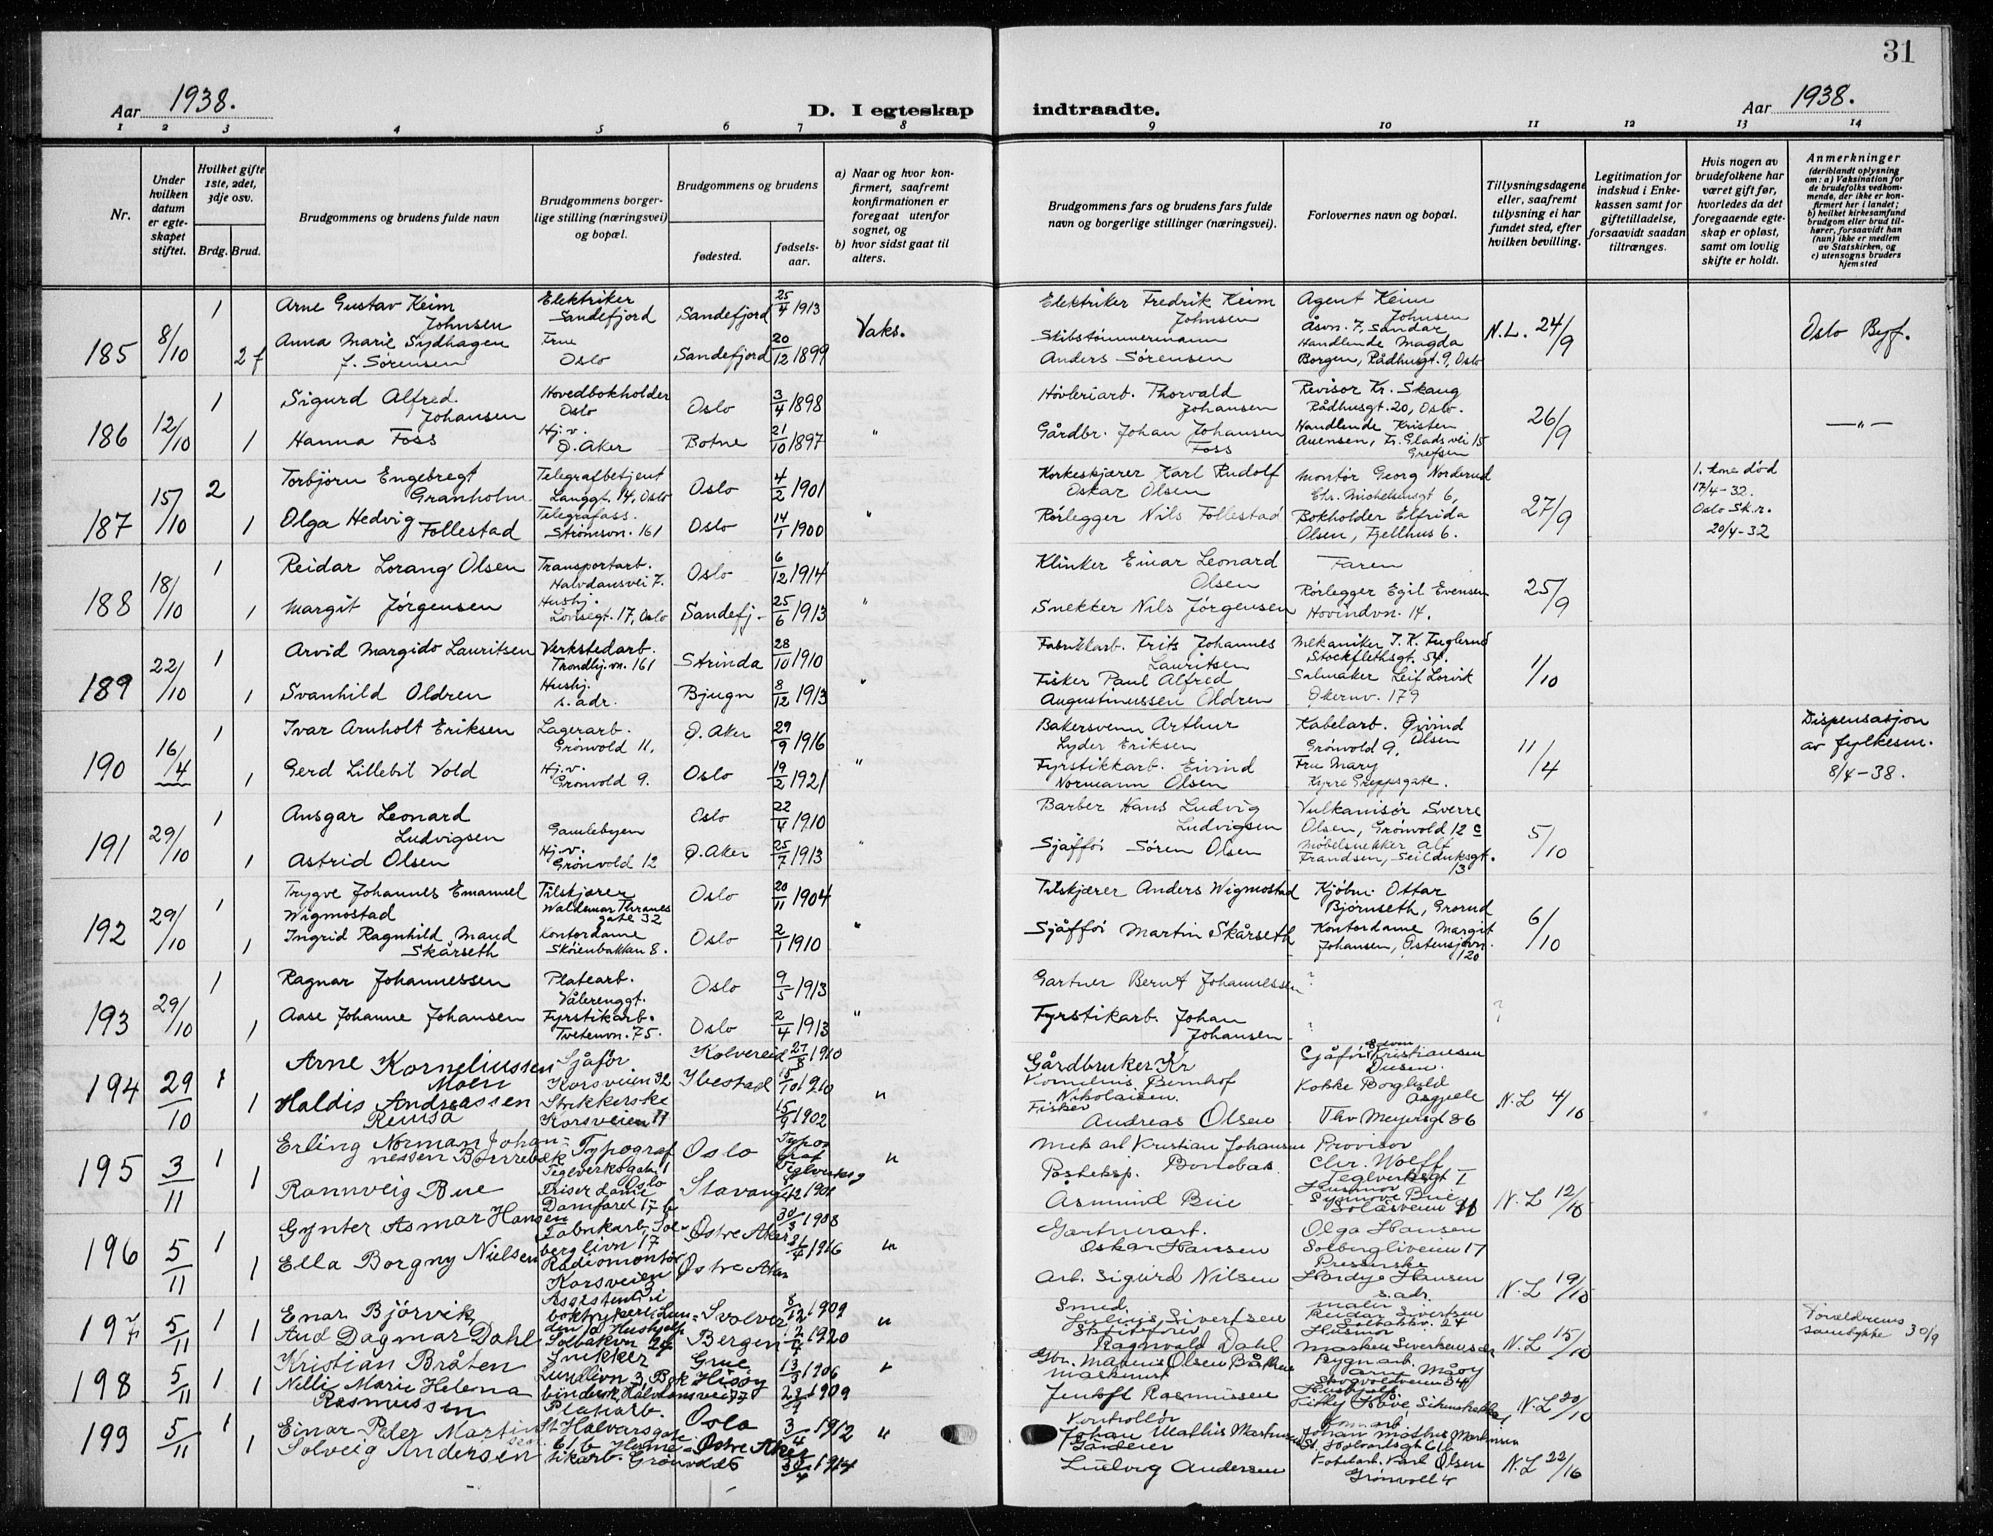 31
Aar 1938.
D. I egteskap indtraadte.
Aar 1938.
1 2 3 4 5 6 7 8 9 10 11 12 13 14
Nr.
Under hvilken datum er egteskapet stiftet.
Hvilket gifte 1ste, 2det, 3dje osv.
Brdg. Brud.
Brudgommens og brudens fulde navn
Brudgommens borgerlige stilling (næringsvei) og bopæl.
Brudgommens og brudens
fødested.
fødselsaar.
a) Naar og hvor konfirmert, saafremt konfirmationen er foregaat utenfor sognet, og
b) hvor sidst gaat til alters.
Brudgommens fars og brudens fars fulde navn og borgerlige stillinger (næringsvei).
Forlovernes navn og bopæl.
Tillysningsdagene eller, saafremt tillysning ei har fundet sted, efter hvilken bevilling.
Legitimation for indskud i Enkekassen samt for giftetilladelse, forsaavidt saadan tiltrænges.
Hvis nogen av brudefolkene har været gift før, hvorledes da det foregaaende egteskap er opløst, samt om lovlig skifte er holdt.
Anmerkninger (deriblandt oplysning om: a) Vaksination for de brudefolks vedkommende, der ikke er konfirmert her i landet; b) hvilket kirkesamfund brudgom eller brud tilhører, forsaavidt han (hun) ikke er medlem av Statskirken, og c) utensogns bruders hjemsted
185 8/10 1 Arne Gustav Keim Johnsen Elektriker Sandefjord Sandefjord 25/4 1913 Vaks. Elektriker Fredrik Keim Johnsen Agent Keim Johnsen Åsvn. 7, Sandar N.L. 24/9 Oslo Byf.
2 f Anna Marie Sydhagen f. Sørensen Frue Oslo Sandefjord 20/12 1899 Skibstømmermann Anders Sørensen Handlende Magda Borgen, Rådhusgt. 9, Oslo
186 12/10 1 Sigurd Alfred Johansen Hovedbokholder Oslo Oslo 3/4 1898 " Høvleriarb. Thorvald Johansen Revisor Kr. Skaug Rådhusgt. 20, Oslo. 26/9 — " —
1 Hanna Foss Hj.v. Ø. Aker Botne 21/10 1897 Gårdbr. Johan Johansen Foss Handlende Kristen Auensen, Tr. Glads vei 15 Grefsen
187 15/10 2 Torbjørn Engebregt Granholm Telegrafbetjent Langgt. 14, Oslo Oslo 4/2 1901 " Korkeskjærer Karl Rudolf Oskar Olsen Montør Georg Norderud Chr. Michelsensgt 6, 27/9 1. kone død 17/4-32. Oslo Sk.r. 20/4-32
1 Olga Hedvig Follestad Telegrafass. Strømsvn. 161 Oslo 14/1 1900 Rørlegger Nils Follestad Bokholder Elfrida Olsen, Fjellhus 6.
188 18/10 1 Reidar Lorang Olsen Transportarb. Halvdansvei 7. Oslo 6/12 1914 " Klinker Einar Leonard Olsen Faren 25/9
1 Margit Jørgensen Hushj. Lovisegt. 17, Oslo Sandefj. 25/6 1913 Snekker Nils Jørgensen Rørlegger Egil Evensen Hovindvn. 14.
189 22/10 1 Arvid Margido Lauritsen Verkstedarb. Trondhj.vn. 161 Strinda 28/10 1910 " Fabrikkarb. Frits Johannes Lauritsen Mekaniker J. K. Fuglerud Stockflethsgt. 54. 1/10
1 Svanhild Oldren Hushj. s. adr. Bjugn 8/12 1913 Fisker Paul Alfred Augustinussen Oldren Salmaker Leif Lorvik Økernv. 179
190 16/4 1 Ivar Arnholt Eriksen Lagerarb. Grønvold 11. Ø. Aker 29/9 1916 " Bakersvenn Arthur Lyder Eriksen Kabelarb. Øivind Olsen Grønvold 9. 11/4 Dispensasjon av fylkesm. 8/4-38.
1 Gerd Lillebil Vold Hj.v. Grønvold 9. Oslo 19/2 1921 Fyrstikkarb. Eivind Normann Olsen Fru Mary Kyrre Greppsgate.
191 29/10 1 Ansgar Leonard Ludvigsen Gamlebyen Oslo 22/4 1910 " Barber Hans Ludvig Ludvigsen Vulkanisør Sverre Olsen, Grønvold 12 c 5/10
1 Astrid Olsen Hj.v. Grønvold 12 Ø. Aker 25/7 1913 Sjåffør Søren Olsen Møbelsnekker Alf Frandsen, Seilduksgt. 13
192 29/10 1 Trygve Johannes Emanuel Wigmostad Tilskjærer Waldemar Thranes gate 32 Oslo 20/11 1904 " Tilskjærer Anders Wigmostad Kjøbm. Ottar Bjørnseth, Grorud 6/10
1 Ingrid Ragnhild Maud Skårseth Kontordame Skøienbakken 8. Oslo 2/1 1910 Sjåffør Martin Skårseth Kontordame Margit Johansen, Østensjøvn. 120
193 29/10 1 Ragnar Johannessen Platearb. Vålerenggt. Oslo 9/5 1913 " Gartner Bernt Johannessen ? ?
1 Aase Johanne Johansen Fyrstikarb. Tvetenvn. 75. Oslo 2/4 1913 Fyrstikarb. Johan Johansen ?
194 29/10 1 Arne Korneliussen Moen Sjåfør Korsveien 32 Kolvereid 27/8 1910 " Gårdbruker Kr Kornelius Bernhof Nikolaisen. Sjåfør Kristiansen N.L 4/10
1 Haldis Andreassen Remså Strikkerske Korsveien Ibestad 15/9 1902 Fisker Andreas Olsen Kokke Borghild Thv Meyersgt 86
195 3/11 1 Erling Norman Johannessen Borrebæk Typograf Teglverksgata 1 Oslo Oslo Typograf Teglverksg " Mek arb Kristian Johansen Provisor Chr. Wolff Teglverksgt I N.L 12/10
1 Rannveig Bue Frisør dame Damfaret 17 b Stavang 1908 Posteksp. Åsmund Bue Husmor Synnøve Bue Solåsveien
196 5/11 1 Gynter Asmar Hansen Fabrikarb. Solberglivn 17 Østre Aker 30/3 1908 " Gartnerarb. Oskar Hansen Olga Hansen Solbergliveien 17 N.L 19/10
1 Ella Borgny Nielsen Radiomontør Korsveien 3 Østre Aker 1916 Arb. Sigurd Nilsen Presserske Hansen s. adr.
197 5/11 1 Enar Bjørvik Assistent i Svolvær 8/12 1909 " Smed. Sivertsen Maler Reidar Sivertsen 24 N.L 15/10 Foreldrenes samtykke 30/9
1 Aud Dagmar Dahl Hushjelp Solbakvn 24 Bergen 2/4 1920 Ragnvald Dahl Husmor
198 5/11 1 Kristian Bråten Snikker Lundlivn 3 Grue 13/3 1906 " Gbr. Magnus Olsen Bråten Bygn arb. Måøy Skogvoldveien 34 N.L 20/10
1 Nelli Marie Helena Rasmussen Bokbinder Halvdansvei Hisøy 1909 Maskinist Jentoft Rasmussen Hushjelp
199 5/11 1 Einar Peter Martinsen Platearb. St Halvarsgate 61 b Oslo 3/4 1912 " Kontrollør Johan Mathis Martinsen Johan Mathis Martinsen St. Halvarsgt 61b N.L 22/10
1 Solveig Andersen Grønvold 6 Østre Aker 1914 Ludvig Andersen Kabelarb. Karl Olsen Grønvoll 4